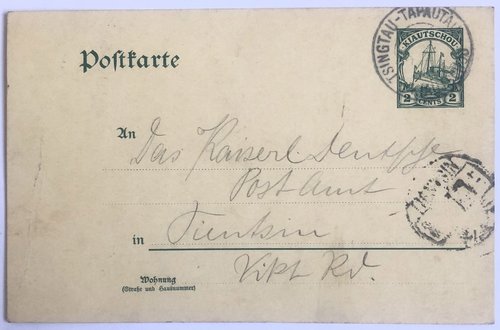 TSINGTAU-TAPAUTAU
KIAUTSCHOU
2 CENTS 2
Postkarte
An
Das Kaiserl. Deutsche
Post Amt
TIENTSIN
in Tientsin
Vikt Rd.
Wohnung
(Straße und Hausnummer)